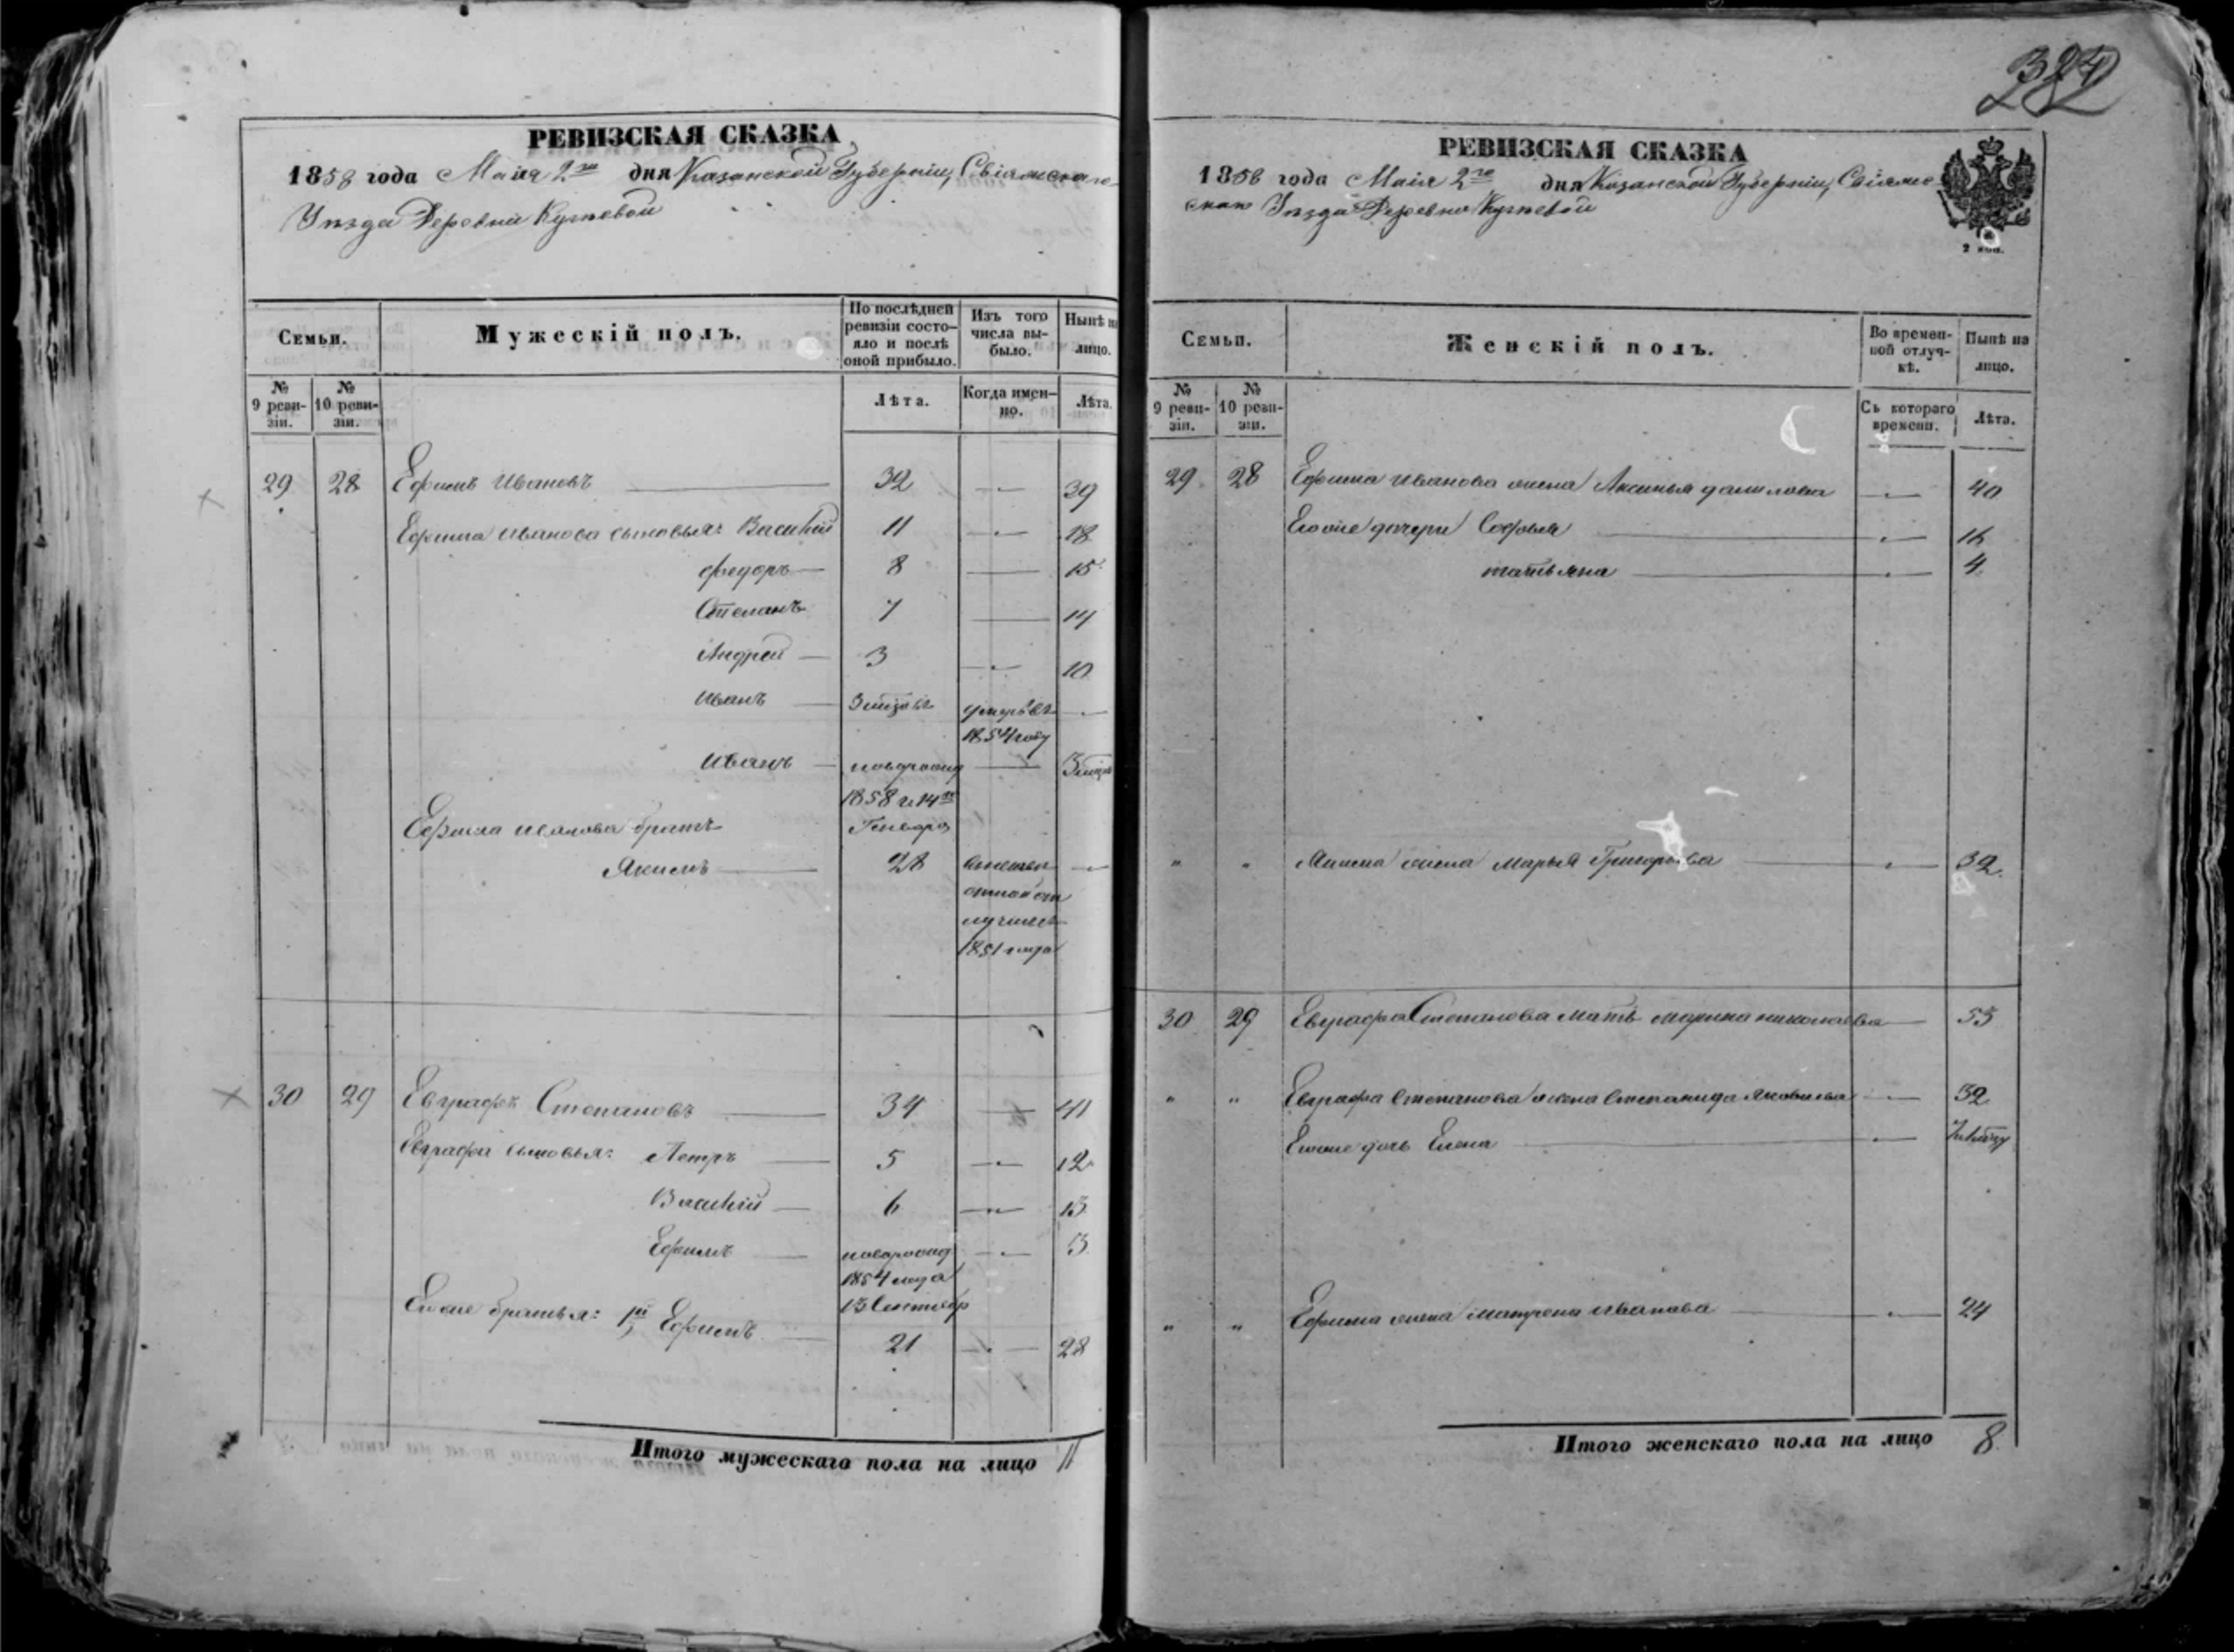 РЕВИЗСКАЯ СКАЗКА
1858 года Маія 2го дня Казанской Губерніи, Свіяжскаго
Уѣзда Деревни
Семьи.
Мужескій полъ.
По послѣдней ревизіи состо-
яло и послѣ оной прибыло.
Изъ того числа вы-
было.
Нынѣ на лицо.
№ 9 реви-
зіи.
№ 10 реви-
зіи.
Лѣта.
Когда имен-
но.
Лѣта.
29 28 Ефимъ Ивановъ 32 39
Ефима Иванова сыновья: Василій 11 18
Федоръ 8 15
Степанъ 7 14
Андрей 3 10
Иванъ умеръ въ
1854 году
Иванъ новорожд
1858 г. 14го
Генваря
Ефима Иванова братъ
Якимъ 28
1851 года
30 29 Евграфъ Степановъ 34 41
Евграфа сыновья: Петръ 5 12
Василій 6 13
Ефимъ новорожд 3
1854 года
13 Сентябр
Его же братья: 1й Ефимъ 21 28
Итого мужескаго пола на лицо 11
РЕВИЗСКАЯ СКАЗКА
1858 года Маія 2го дня Казанской Губерніи, Свіяж-
скаго Уѣзда Деревни
2 коп.
Семьи.
Женскій полъ.
Во времен-
ной отлуч-
кѣ.
Нынѣ на лицо.
№ 9 реви-
зіи.
№ 10 реви-
зіи.
Съ котораго времени.
Лѣта.
29 28 Ефима Иванова жена Аксинья Данилова 40
Его же дочери Софья 16
Татьяна 4
" " Якима жена Марья Григорьева 32
30 29 Евграфа Степанова мать Марина Николаева 55
" " Евграфа Степанова жена Степанида Яковлева 32
Его же дочь Елена
" " Ефима жена Матрена Иванова 24
Итого женскаго пола на лицо 8